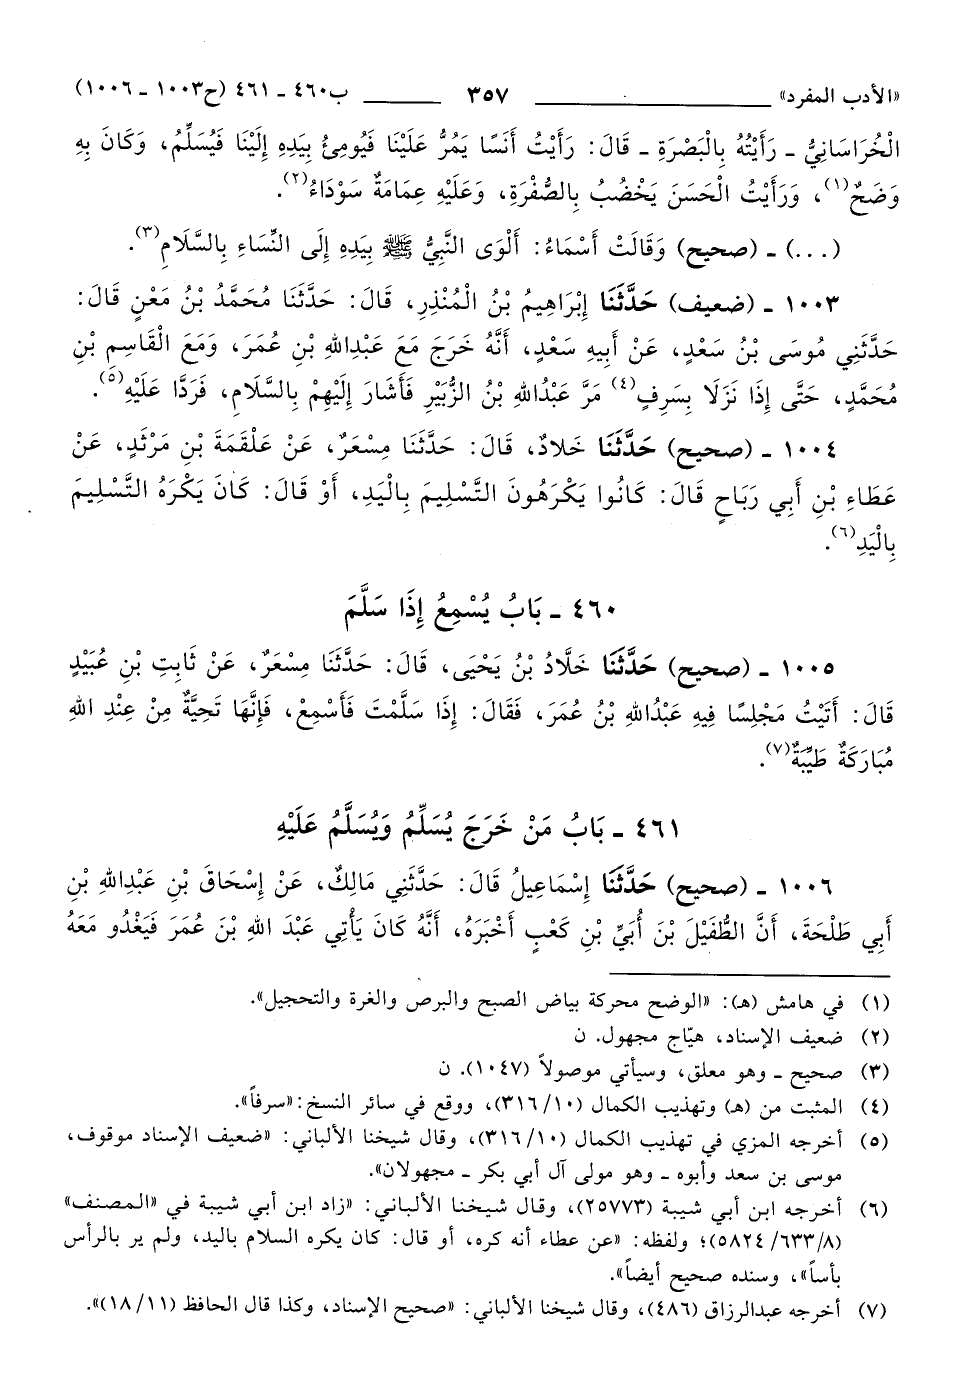 «الأدب المفرد» ٣٥٧ ب٤٦٠ ـ ٤٦١ (ح١٠٠٣ ـ ١٠٠٦)
الْخُرَاسَانِيُّ ـ رَأَيْتُهُ بِالْبَصْرَةِ ـ قَالَ: رَأَيْتُ أَنَسًا يَمُرُّ عَلَيْنَا فَيُومِئُ بِيَدِهِ إِلَيْنَا فَيُسَلِّمُ، وَكَانَ بِهِ
وَضَحٌ(١)، وَرَأَيْتُ الْحَسَنَ يَخْضُبُ بِالصُّفْرَةِ، وَعَلَيْهِ عِمَامَةٌ سَوْدَاءُ(٢).
(...) ـ (صحيح) وَقَالَتْ أَسْمَاءُ: أَلْوَى النَّبِيُّ ﷺ بِيَدِهِ إِلَى النِّسَاءِ بِالسَّلَامِ(٣).
١٠٠٣ ـ (ضعيف) حَدَّثَنَا إِبْرَاهِيمُ بْنُ الْمُنْذِرِ، قَالَ: حَدَّثَنَا مُحَمَّدُ بْنُ مَعْنٍ قَالَ:
حَدَّثَنِي مُوسَى بْنُ سَعْدٍ، عَنْ أَبِيهِ سَعْدٍ، أَنَّهُ خَرَجَ مَعَ عَبْدِاللهِ بْنِ عُمَرَ، وَمَعَ الْقَاسِمِ بْنِ
مُحَمَّدٍ، حَتَّى إِذَا نَزَلَا بِسَرِفٍ(٤) مَرَّ عَبْدُاللهِ بْنُ الزُّبَيْرِ فَأَشَارَ إِلَيْهِمْ بِالسَّلَامِ، فَرَدَّا عَلَيْهِ(٥).
١٠٠٤ ـ (صحيح) حَدَّثَنَا خَلادٌ، قَالَ: حَدَّثَنَا مِسْعَرٌ، عَنْ عَلْقَمَةَ بْنِ مَرْثَدٍ، عَنْ
عَطَاءِ بْنِ أَبِي رَبَاحٍ قَالَ: كَانُوا يَكْرَهُونَ التَّسْلِيمَ بِالْيَدِ، أَوْ قَالَ: كَانَ يَكْرَهُ التَّسْلِيمَ
بِالْيَدِ(٦).
٤٦٠ ـ بَابُ يُسْمِعُ إِذَا سَلَّمَ
١٠٠٥ ـ (صحيح) حَدَّثَنَا خَلَّادُ بْنُ يَحْيَى، قَالَ: حَدَّثَنَا مِسْعَرٌ، عَنْ ثَابِتِ بْنِ عُبَيْدٍ
قَالَ: أَتَيْتُ مَجْلِسًا فِيهِ عَبْدُاللهِ بْنُ عُمَرَ، فَقَالَ: إِذَا سَلَّمْتَ فَأَسْمِعْ، فَإِنَّهَا تَحِيَّةٌ مِنْ عِنْدِ اللهِ
مُبَارَكَةٌ طَيِّبَةٌ(٧).
٤٦١ ـ بَابُ مَنْ خَرَجَ يُسَلِّمُ وَيُسَلَّمُ عَلَيْهِ
١٠٠٦ ـ (صحيح) حَدَّثَنَا إِسْمَاعِيلُ قَالَ: حَدَّثَنِي مَالِكٌ، عَنْ إِسْحَاقَ بْنِ عَبْدِاللهِ بْنِ
أَبِي طَلْحَةَ، أَنَّ الطُّفَيْلَ بْنَ أُبَيِّ بْنِ كَعْبٍ أَخْبَرَهُ، أَنَّهُ كَانَ يَأْتِي عَبْدَ اللهِ بْنَ عُمَرَ فَيَغْدُو مَعَهُ
(١) في هامش (هـ): «الوضح محركة بياض الصبح والبرص والغرة والتحجيل».
(٢) ضعيف الإسناد، هيّاج مجهول. ن
(٣) صحيح ـ وهو معلق، وسيأتي موصولاً (١٠٤٧). ن
(٤) المثبت من (هـ) وتهذيب الكمال (٣١٦/١٠)، ووقع في سائر النسخ: «سرفاً».
(٥) أخرجه المزي في تهذيب الكمال (٣١٦/١٠)، وقال شيخنا الألباني: «ضعيف الإسناد موقوف،
موسى بن سعد وأبوه ـ وهو مولى آل أبي بكر ـ مجهولان».
(٦) أخرجه ابن أبي شيبة (٢٥٧٧٣)، وقال شيخنا الألباني: «زاد ابن أبي شيبة في «المصنف»
(٥٨٢٤/٦٣٣/٨)؛ ولفظه: «عن عطاء أنه كره، أو قال: كان يكره السلام باليد، ولم ير بالرأس
بأساً»، وسنده صحيح أيضاً».
(٧) أخرجه عبدالرزاق (٤٨٦)، وقال شيخنا الألباني: «صحيح الإسناد، وكذا قال الحافظ (١٨/١١)».